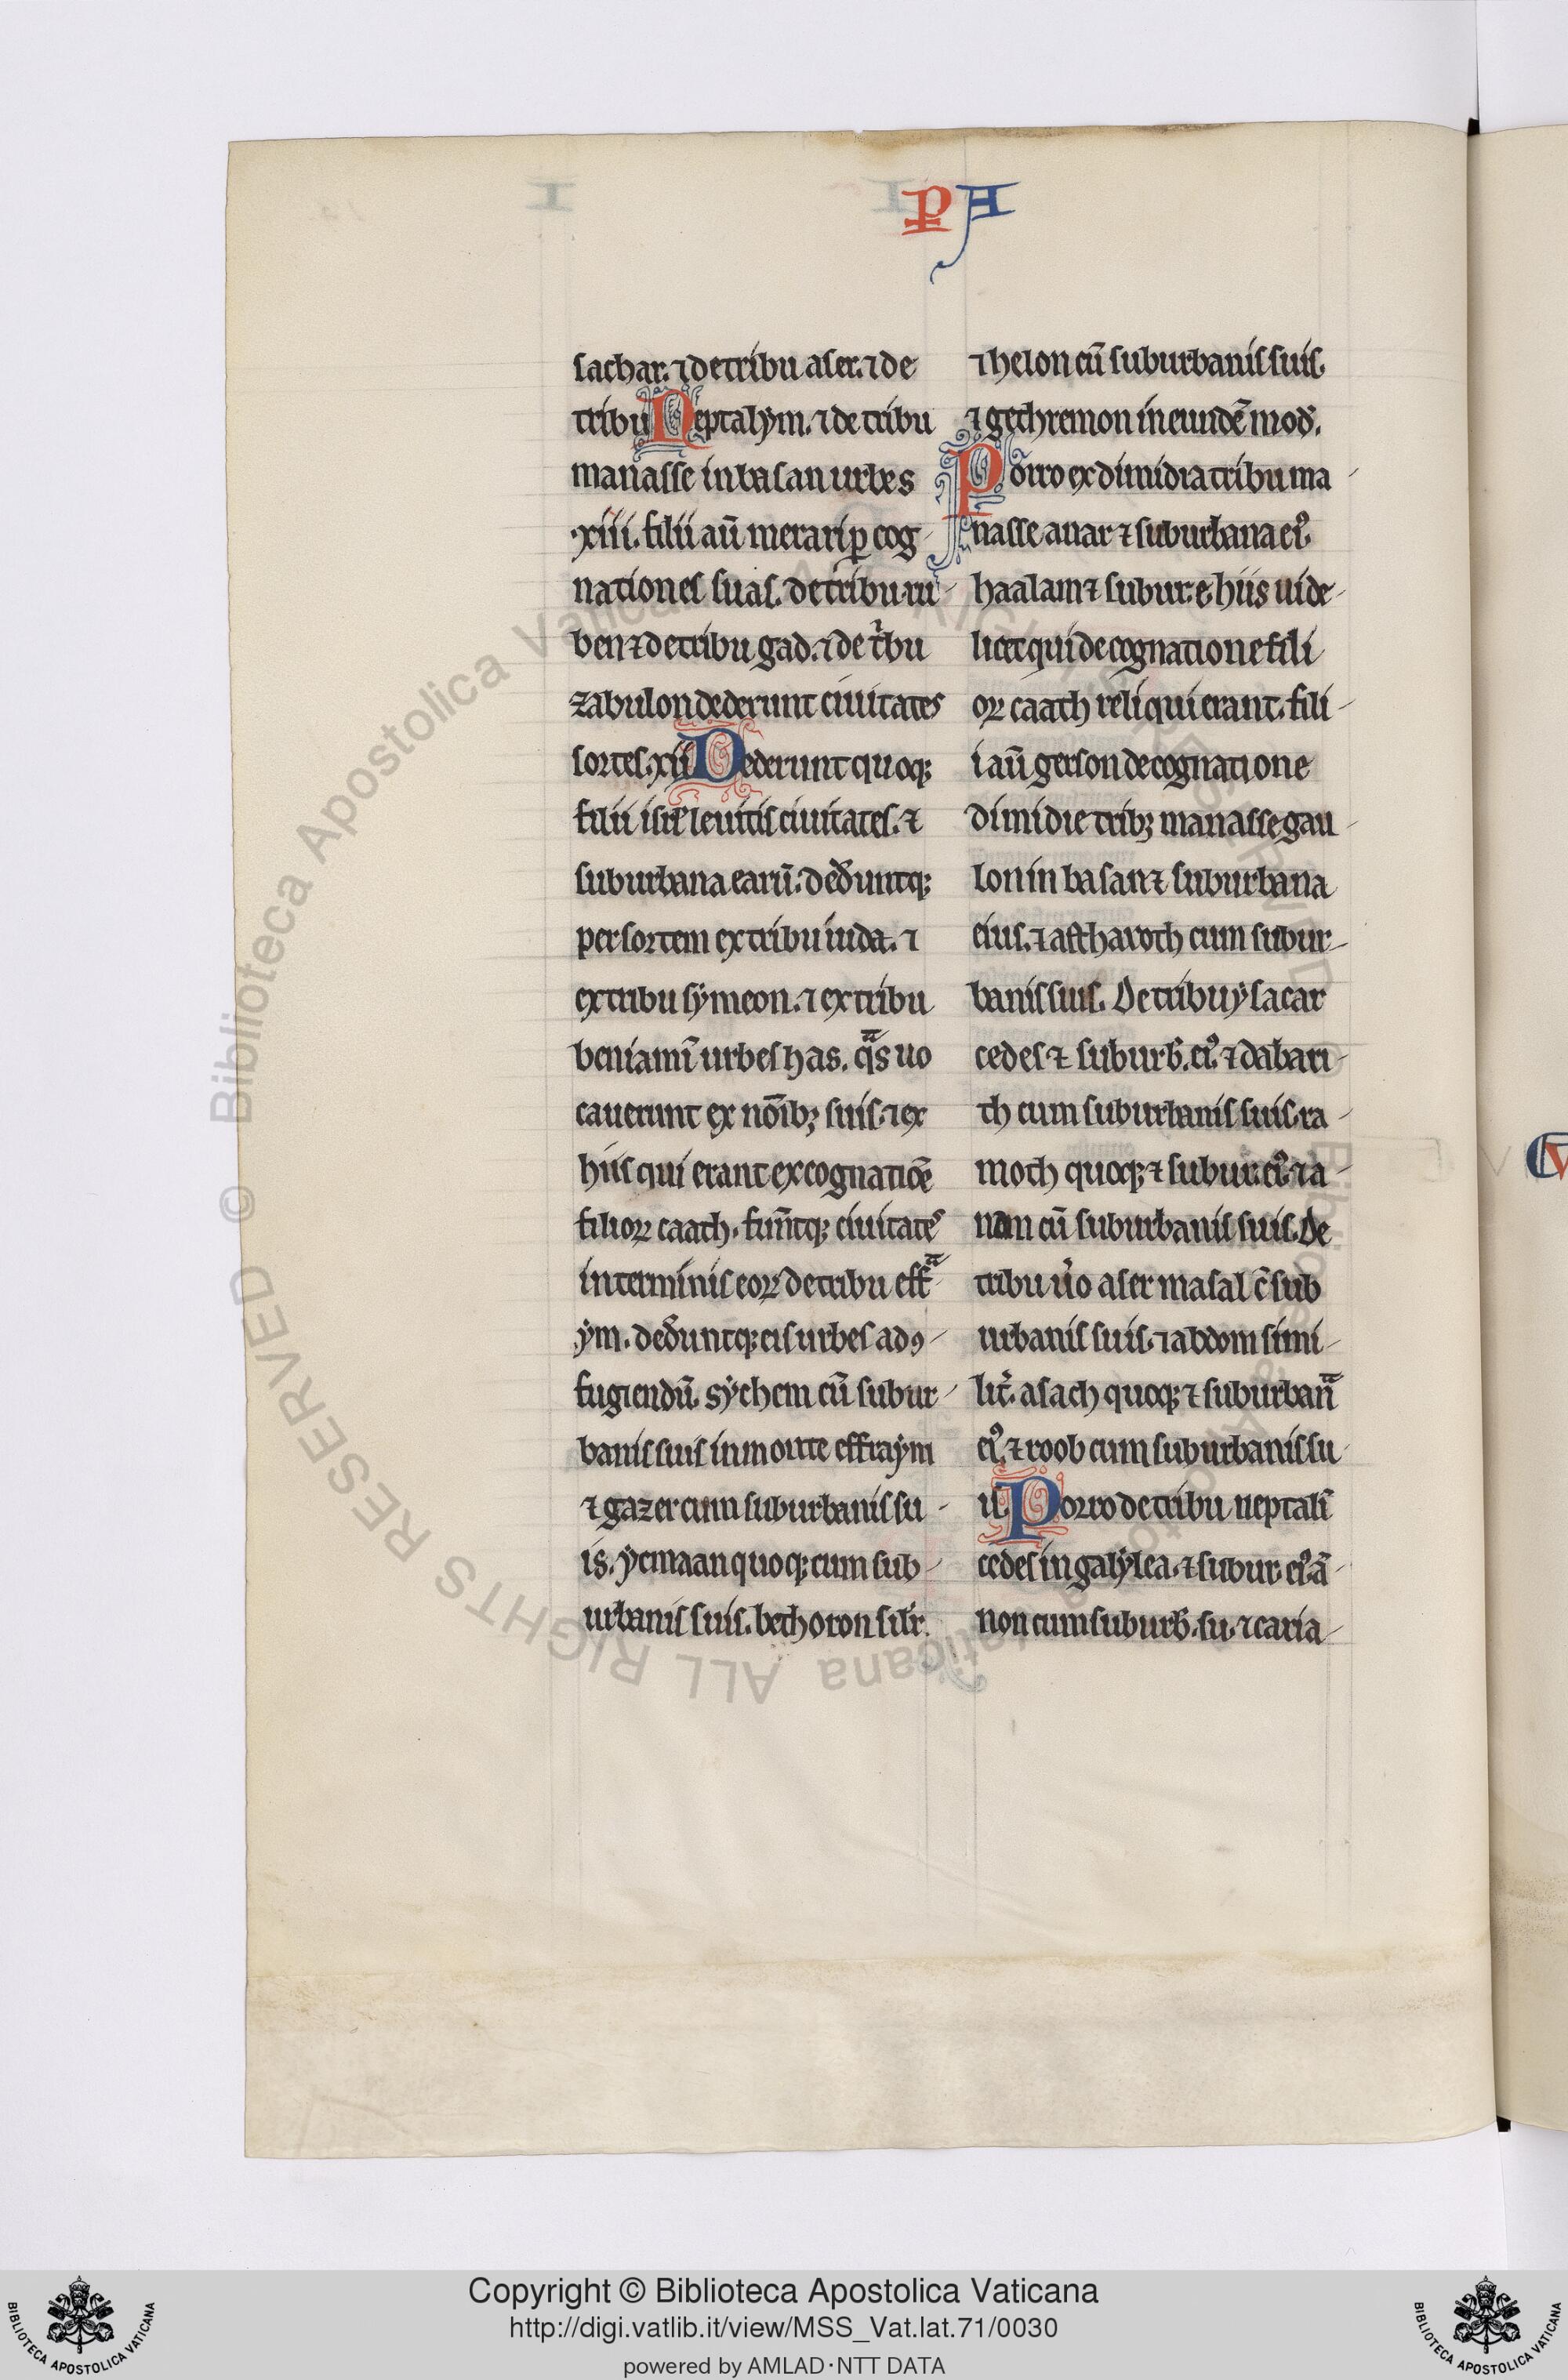 PA
sachar. ⁊ de tribu aser. ⁊ de
tribu Neptalẏm. ⁊ de tribu
manasse in basan urbes
.xiii. filii aū merari ꝑ cog
nationes suas. de tribu ru
ben ⁊ de tribu gad. ⁊ de tͥbu
zabulon dederunt ciuitates
sortes. xii Dederunt quoqꝫ
filii isrł leuitis ciuitates. ⁊
suburbana earū. dederūtqꝫ
per sortem ex tribu iuda. ⁊
ex tribu sẏmeon. ⁊ ex tribu
beniamī urbes has. qᷓs uo
cauerunt ex noībꝫ suis. ⁊ ex
hiis qui erant ex cognatiōe
filioꝝ caath. fuīntqꝫ ciuitateˢ
in terminis eoꝝ de tribu effᷓ
ẏm. dederuntqꝫ eis urbes ad ꝯ
fugiendū. sẏchem cū subur
banis suis in monte effraẏm
⁊ gazer cum suburbanis su
is. ẏcmaan quoqꝫ cum sub
urbanis suis. bethoron silr̄.
⁊ helon cū suburbanis suis.
⁊ gethremon in eundē mod̄.
Porro ex dimidia tribu ma
nasse anar ⁊ suburbana eiꝰ.
haalam ⁊ subur. e hiis uide
licet qui de cognatione fili
oꝝ caath reliqui erant. fili
i aū gerson de cognatione
dimidie tribꝫ manasse gau
lon in basan ⁊ suburbana
eius. ⁊ astharoth cum subur
banis suis. De tribu ẏsacar
cedes ⁊ suburb̄. eiꝰ. ⁊ dabari
th cum suburbanis suis. ra
moth quoqꝫ ⁊ subur. eiꝰ. ⁊ a
nam cū suburbanis suis. De
tribu ůo aser masal c̄ sub
urbanis suis. ⁊ abdom simi
lit̾. asach quoqꝫ ⁊ suburbanᷓ
eiꝰ. ⁊ roob cum suburbanis su
is. Porro de tribu neptalī
cedes in galẏlea. ⁊ subur. eiꝰ. ā
non cum suburb̄. su. ⁊ caria
© Biblioteca Apostolica Vaticana ALL RIGHTS RESERVED
Copyright © Biblioteca Apostolica Vaticana
http://digi.vatlib.it/view/MSS_Vat.lat.71/0030
powered by AMLAD·NTT DATA
BIBLIOTECA APOSTOLICA VATICANA
BIBLIOTECA APOSTOLICA VATICANA